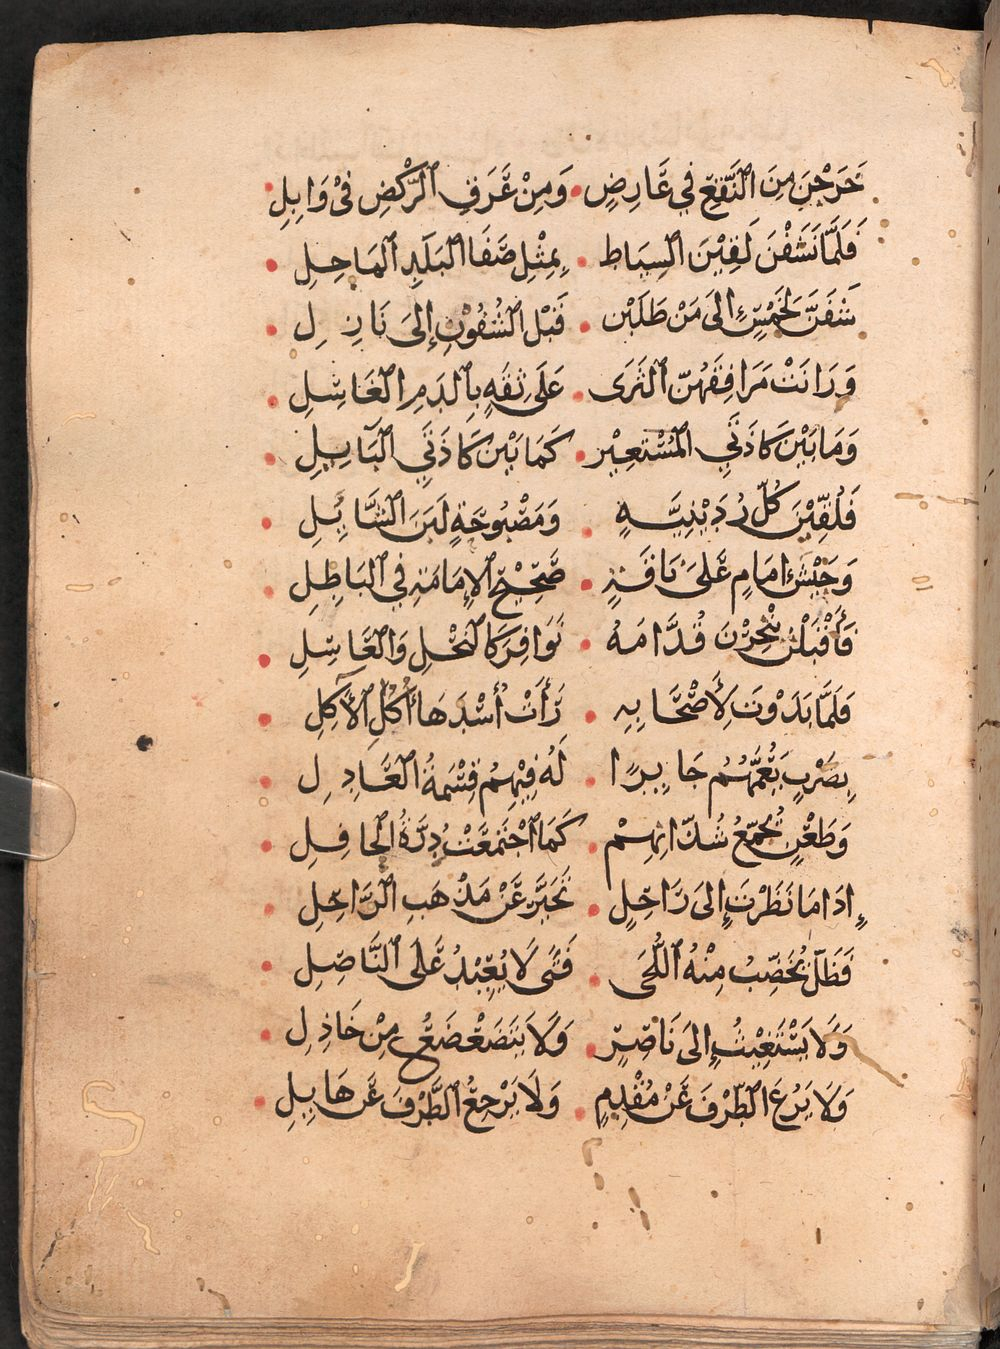 خَرَجْنَ مِنَ النَّقْعِ فِي عَارِضٍ وَمِنْ عَرَقِ الرَّكْضِ فِي وَابِلِ
فَلَمَّا نَشَفْنَ لَقِيْنَ السِيَاط بِمِثْلِ صَفَا البَلَدِ المَاحِلِ
شَفَنَّ لِخَمْسٍ إِلىَ مَنْ طَلَبْن قَبْلَ الشُفُوْنِ إِلىَ نَازِلِ
وَدَانَتْ مَرَافِقَهُنّ الثَرَى عَلَى ثِقَةٍ بِالدَمِ الغَاسِلِ
وَمَا بَيْنَ كَاذَتَيِ المُسْتَعِيْرِ كَمَا بَيْنَ كَاذَتَيِ البَائِلِ
فَلُقِّيْنَ كُلّ رُدَيْنِيَّةٍ وَمَصْبُوحَةٍ لَبَنَ الشَّائِلِ
وَجَيْشَ امَامٍ عَلىَ نَاقَةٍ صَحِيْحِ الإِمَامَةِ فِي البَاطِلِ
فَأَقْبَلْنَ يَنْحَزْنَ قُدَّامَهُ نَوَافِرَ كَالنَحْلِ وَالعَاسِلِ
فَلَمَّا بَدَوْتَ لِأَصْحَابِهِ رَأَتْ أُسْدَهَا أَكْلَ الآكِلِ
بِضَرْبٍ يَعُمُّهُمُ جَايِرًا لَهُ فِيْهِمُ قِسْمَةُ العَادِلِ
وَطَعْنٍ يُجَمِّعُ شُذّانَهُمْ كَمَا اجْتَمَعَتْ دِرَّةُ الحَافِلِ
إِذَا مَا نَظَرْتَ إِلىَ رَاجِلٍ تَحَيَّرَ عَنْ مَذْهَبِ الرَّاجِلِ
فَظَلّ يُخَضِّبُ مِنْهُ اللُّحَى فَتًى لَا يُعِيْدُ عَلَى النَّاصِلِ
وَلَا يَسْتَغِيْثُ إِلىَ نَاصِرٍ وَلَا يَتَضَعْضَعُ مِنْ خَاذِلِ
وَلَا يَزَعُ الطّرْفَ عَنْ مُقْدِمٍ وَلَا يَرْجِعُ الطَّرْفَ عَن هَايِلِ